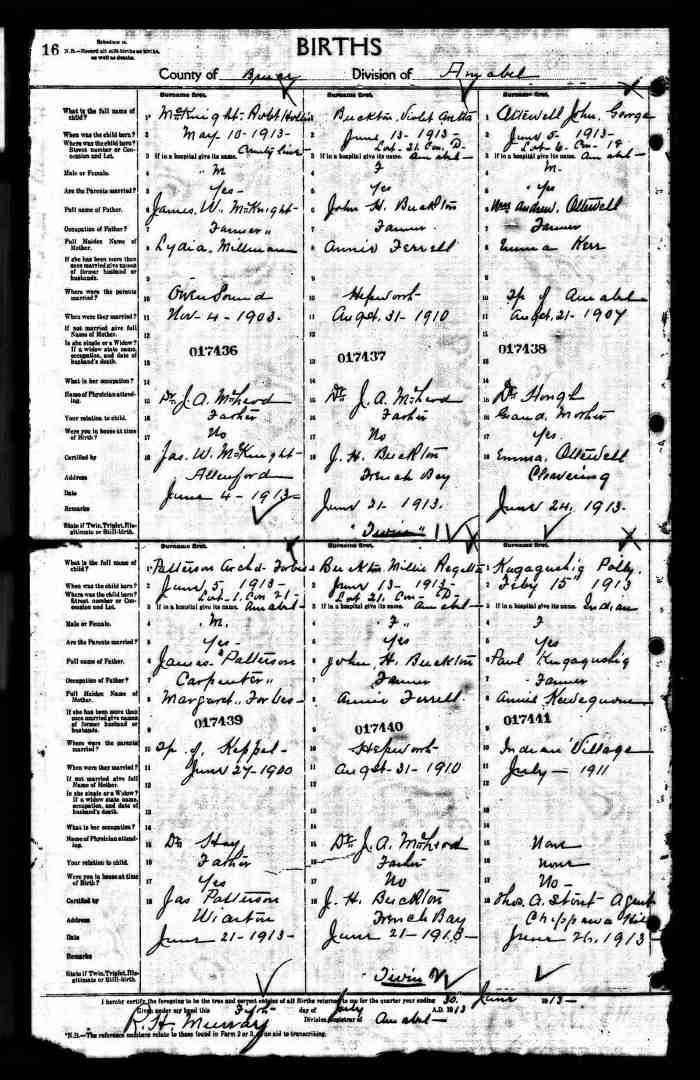 16
Schedule A.
N.B.—Record all still-births as births, as well as deaths.
BIRTHS
County of Bruce Division of Amabel
Surname first. Surname first. Surname first.
What is the full name of child? 1 McKnight Robt Hollis Buckton, Violet Ortell John, George
When was the child born? 2 May 10-1913- June 13-1913- June 5- 1913-
Where was the child born? Street number or Concession and Lot. County Line Lot 21. Con. D- Lot 6- Con- 18
3 If in a hospital give its name. If in a hospital give its name. Amabel- If in a hospital give its name. Amabel-
Male or Female. 4 M F M-
Are the Parents married? 5 Yes- Yes Yes
Full name of Father. 6 James. W. McKnight- John H. Buckton Andrew.
Occupation of Father? 7 Farmer Farmer. Farmer
Full Maiden Name of Mother. 8 Lydia. Millman Annie Ferrell Emma Kerr
If she has been more than once married give names of former husband or husbands. 9
Where were the parents married? 10 Owen Sound Hepworth Tp of Amabel
When were they married? 11 Nov-4-1903. August. 31-1910 August. 21-1907
If not married give full Name of Mother. 12
Is she single or a Widow? If a widow state name, occupation, and date of husband's death. 13
017436 017437 017438
What is her occupation? 14
Name of Physician attending. 15 Dr J. A. McLeod Dr. J. A. McLeod Dr Hough
Your relation to child. 16 Father Father Grand Mother
Were you in house at time of Birth? 17 No No Yes
Certified by 18 Jas. W. McKnight- J. H. Buckton Emma.
Address Allenford French Bay Clavering
Date June 4-1913- June 21-1913. June 24, 1913.
Remarks
State if Twin, Triplet, Illegitimate or Still-birth. "Twin"
Surname first. Surname first. Surname first.
What is the full name of child? 1 Patterson Archd- Forbes Buckton Millie Kugagushig Polly.
When was the child born? 2 June 5- 1913- June 13-1913- Feby 15th 1913
Where was the child born? Street number or Concession and Lot. Lot-1. Con 21- Lot 21. Con- D-
3 If in a hospital give its name. Amabel- If in a hospital give its name. Amabel- If in a hospital give its name. Indian
Male or Female. 4 M. F F
Are the Parents married? 5 Yes- Yes Yes
Full name of Father. 6 James Patterson John, H. Buckton Paul Kugagushig
Occupation of Father? 7 Carpenter Farmer Farmer
Full Maiden Name of Mother. 8 Margaret Forbes- Annie Ferrell. Annie
If she has been more than once married give names of former husband or husbands. 9
017439 017440 017441
Where were the parents married? 10 Tp. of Keppel- Hepworth- Indian Village
When were they married? 11 June 27-1900 August-31-1910 July- 1911
If not married give full Name of Mother. 12
Is she single or a Widow? If a widow state name, occupation, and date of husband's death. 13
What is her occupation? 14
Name of Physician attending. 15 Dr Hay Dr J. A. McLeod None
Your relation to child. 16 Father Father none
Were you in house at time of Birth? 17 Yes No No-
Certified by 18 Jas Patterson J. H. Buckton Thos. A. Stout- Agent
Address Wiarton French Bay Chippewa Hill
Date June-21-1913- June 21-1913- June 26, 1913
Remarks
State if Twin, Triplet, Illegitimate or Still-birth. Twin
I hereby certify the foregoing to be the true and correct entries of all Births returned to me for the quarter year ending 30. June 1913-
Given under my hand this day of July A.D. 1913
R. H. Murray Division Registrar of Amabel-
*N.B.—The reference numbers relate to those found in Form 2 or 3, an aid to transcribing.